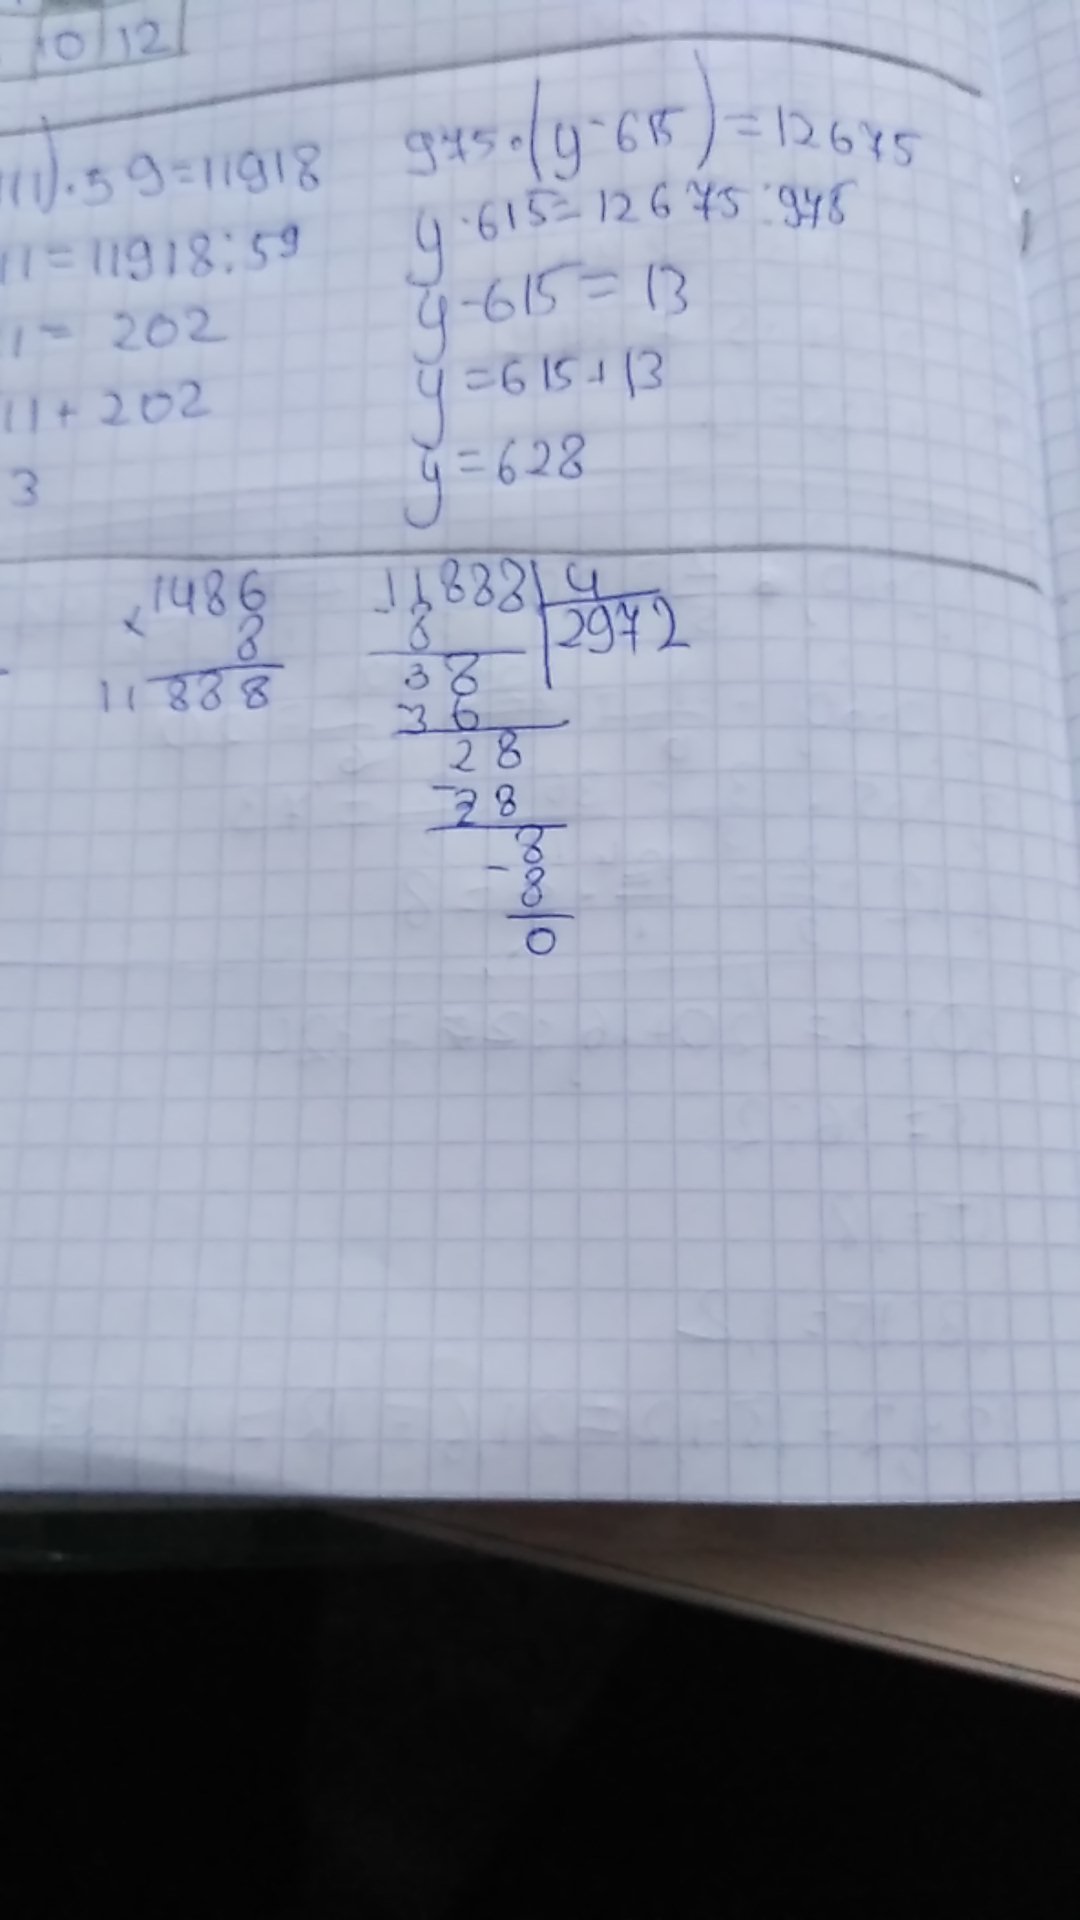 10 12
111)·59=11918
11=11918:59
1= 202
11+202
3
975·(y-615)=12675
y-615=12675:975
y-615=13
y=615+13
y=628
×1486
8
11888
11888|4
8 2972
38
36
28
-28
8
-8
0